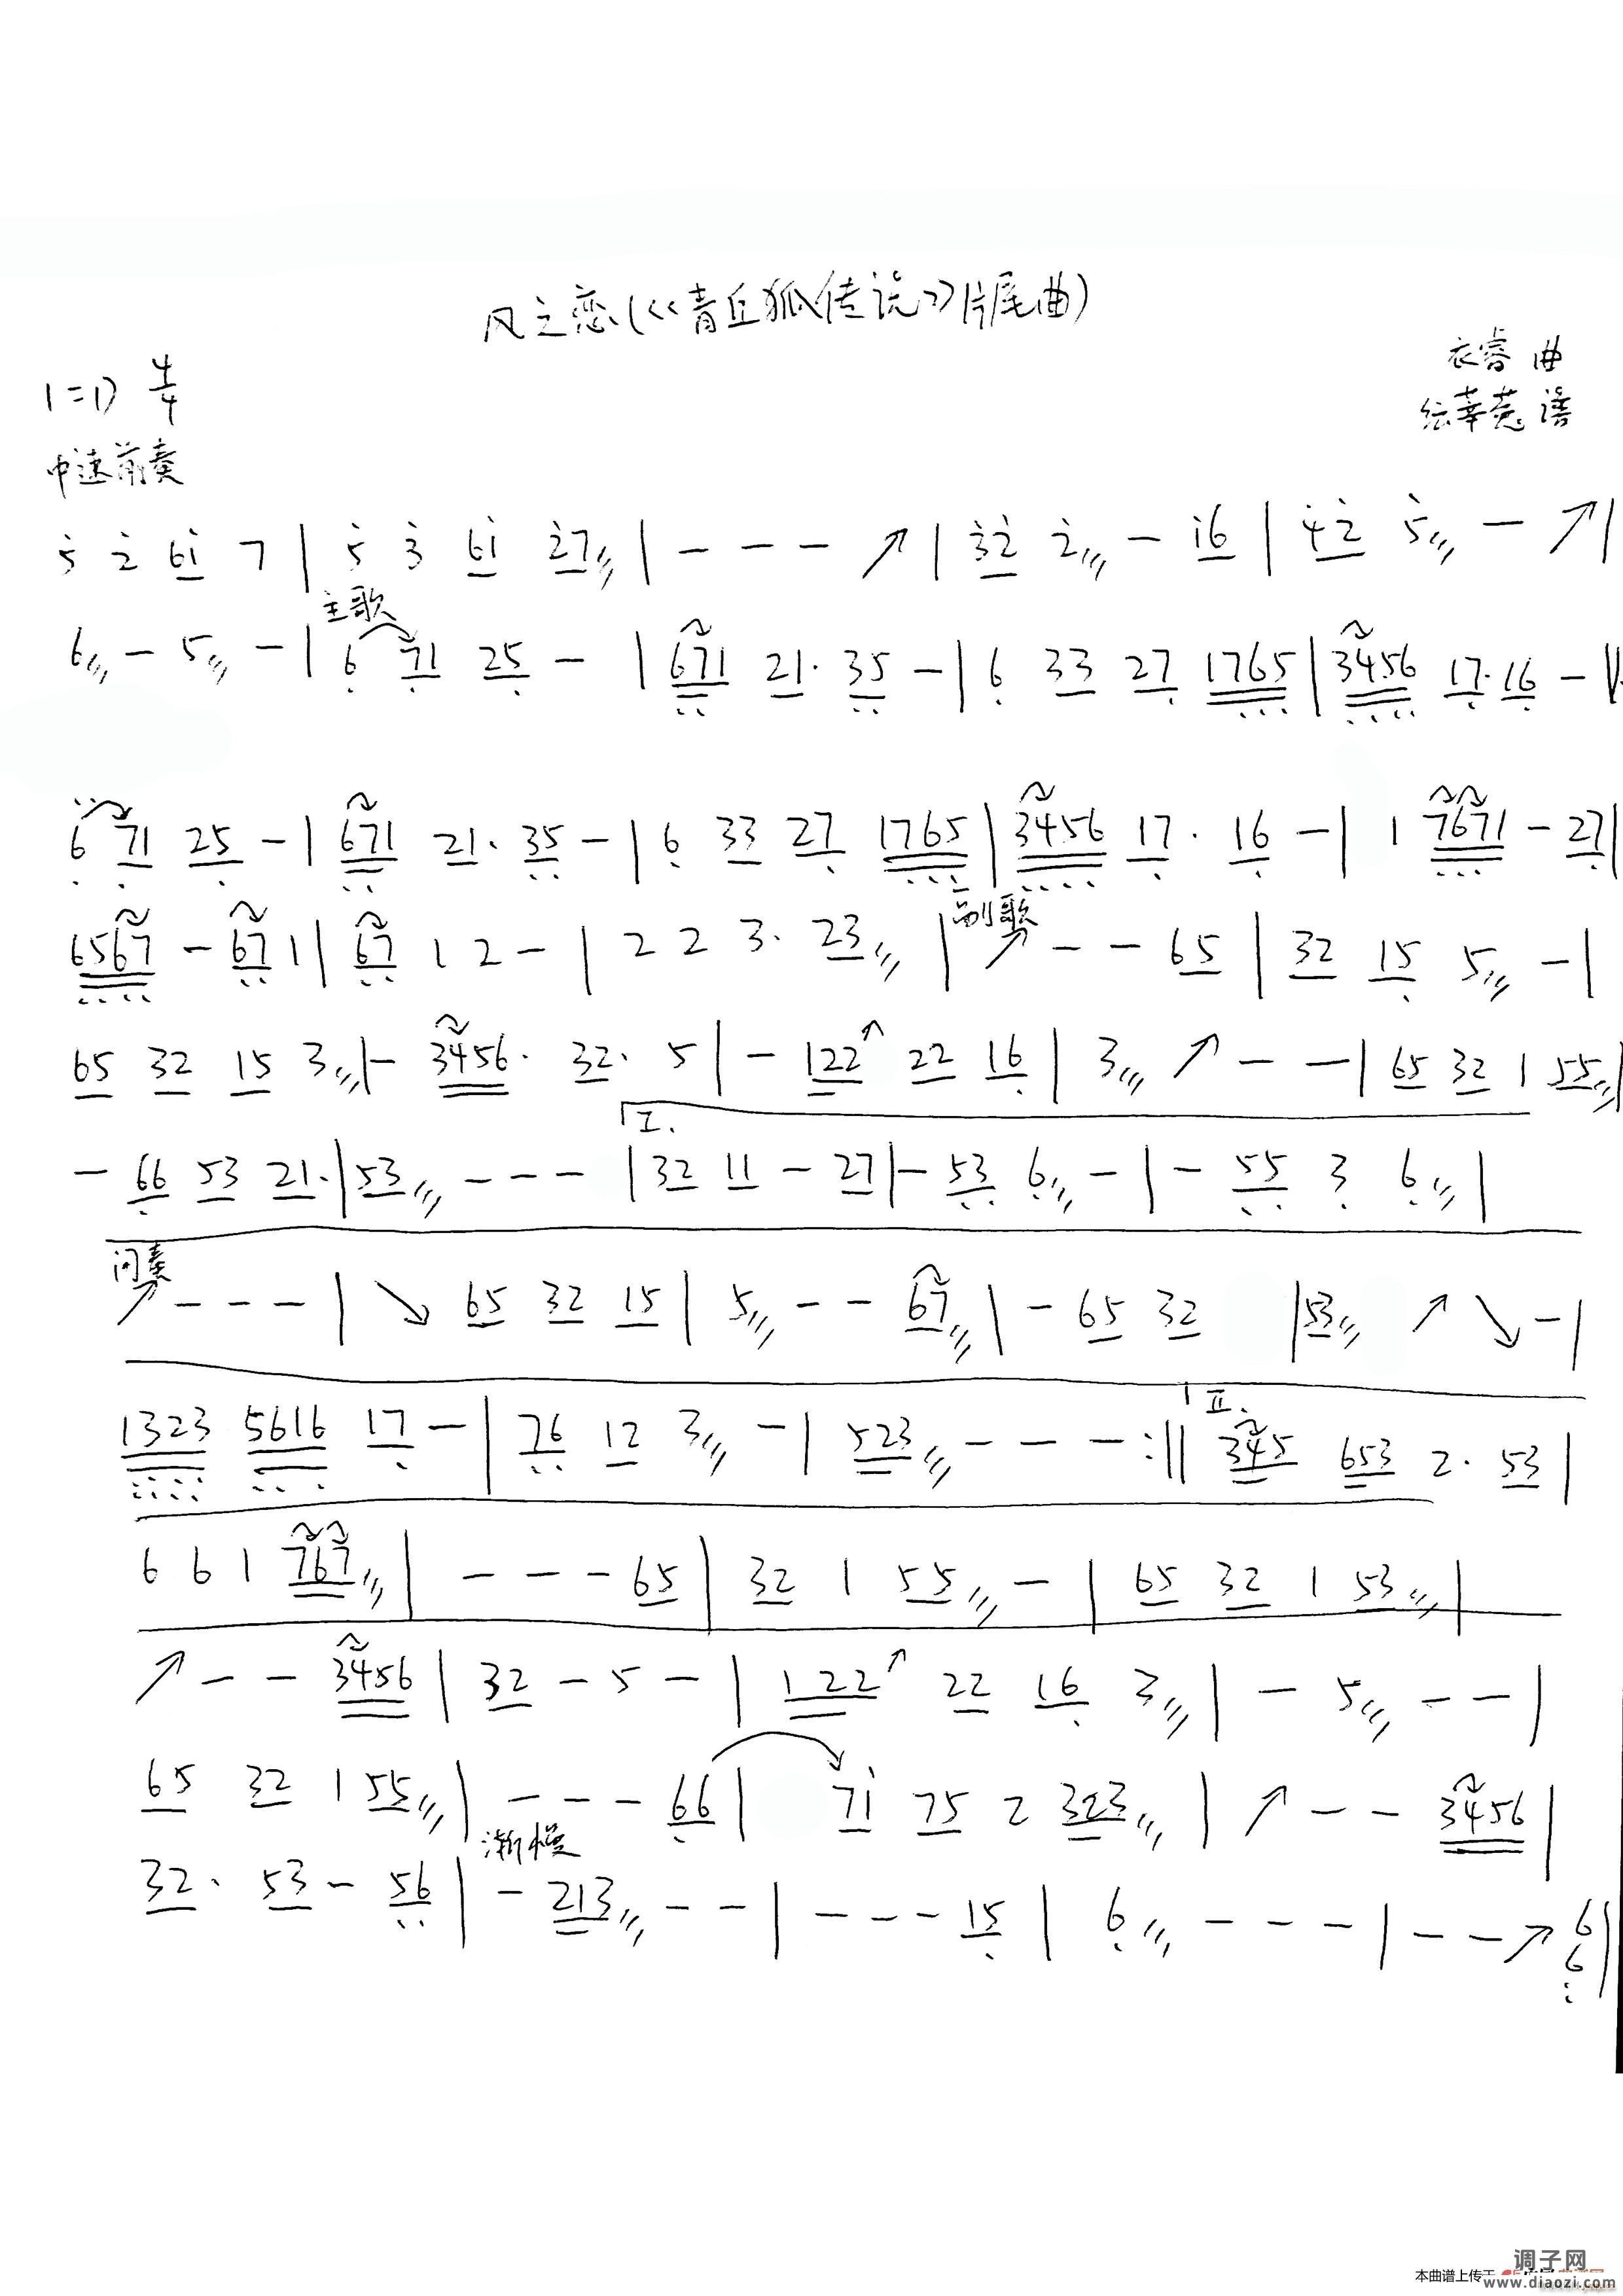 风之恋(<<青丘狐传说>>片尾曲)
衣睿 曲
1=D 4/4
谱
中速前奏
5 2 61 7 | 5 3 61 27 | - - - ↗ | 32 2 - 16 | 42 5 - ↗ |
主歌
6 - 5 - | 6 71 25 - | 671 21· 35 - | 6 33 27 1765 | 3456 17·16 - ‖:
6 71 25 - | 671 21· 35 - | 6 33 27 1765 | 3456 17· 16 - | 1 7671 - 27 |
副歌
6567 - 67 1 | 67 1 2 - | 2 2 3· 23 | ↗ - - 65 | 32 15 5 - |
65 32 15 3 | - 3456· 32· 5 | - 122↗ 22 16 | 3 ↗ - - | 65 32 1 55 |
I.
- 66 53 21· | 53 - - - | 32 11 - 27 | - 53 6 - | - 55 3 6 |
间奏
↗ - - - | ↘ 65 32 15 | 5 - - 67 | - 65 32 | 53 ↗ ↘ - |
II.
1323 5616 17 - | 76 12 3 - | 523 - - - :‖ 345 653 2· 53 |
6 6 1 767 | - - - 65 | 32 1 55 - | 65 32 1 53 |
↗ - - 3456 | 32 - 5 - | 122↗ 22 16 3 | - 5 - - |
65 32 1 55 | - - - 66 | 71 75 2 323 | ↗ - - 3456 |
渐慢
32· 53 - 56 | - 213 - - | - - - 15 | 6 - - - | - - ↗ 6 |
6
调子网
本曲谱上传于
www.diaozi.com